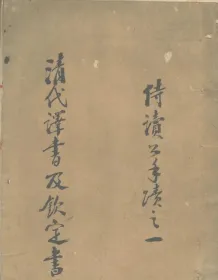 侍讀公手蹟之一
清代譯書及欽定書